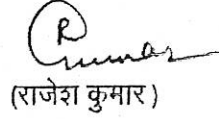 R Kumar
(राजेश कुमार)